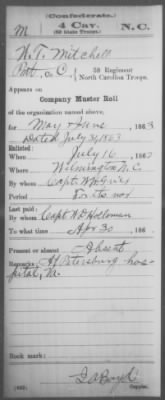 (Confederate.)
M 4 Cav. N.C.
(59 State Troops.)
W. T. Mitchell
Pvt., Co. C, 59 Regiment
North Carolina Troops.
Appears on
Company Muster Roll
of the organization named above,
for May & June, 1863.
Dated July 31, 1863
Enlisted:
When July 16, 186
Where Wilmington N.C.
By whom Capt.
Period For the war
Last paid:
By whom Capt. W. D. Holloman
To what time Apr 30, 186
Present or absent Absent
Remarks: At Petersburg hos-
pital, Va.
Book mark:
Copyist.